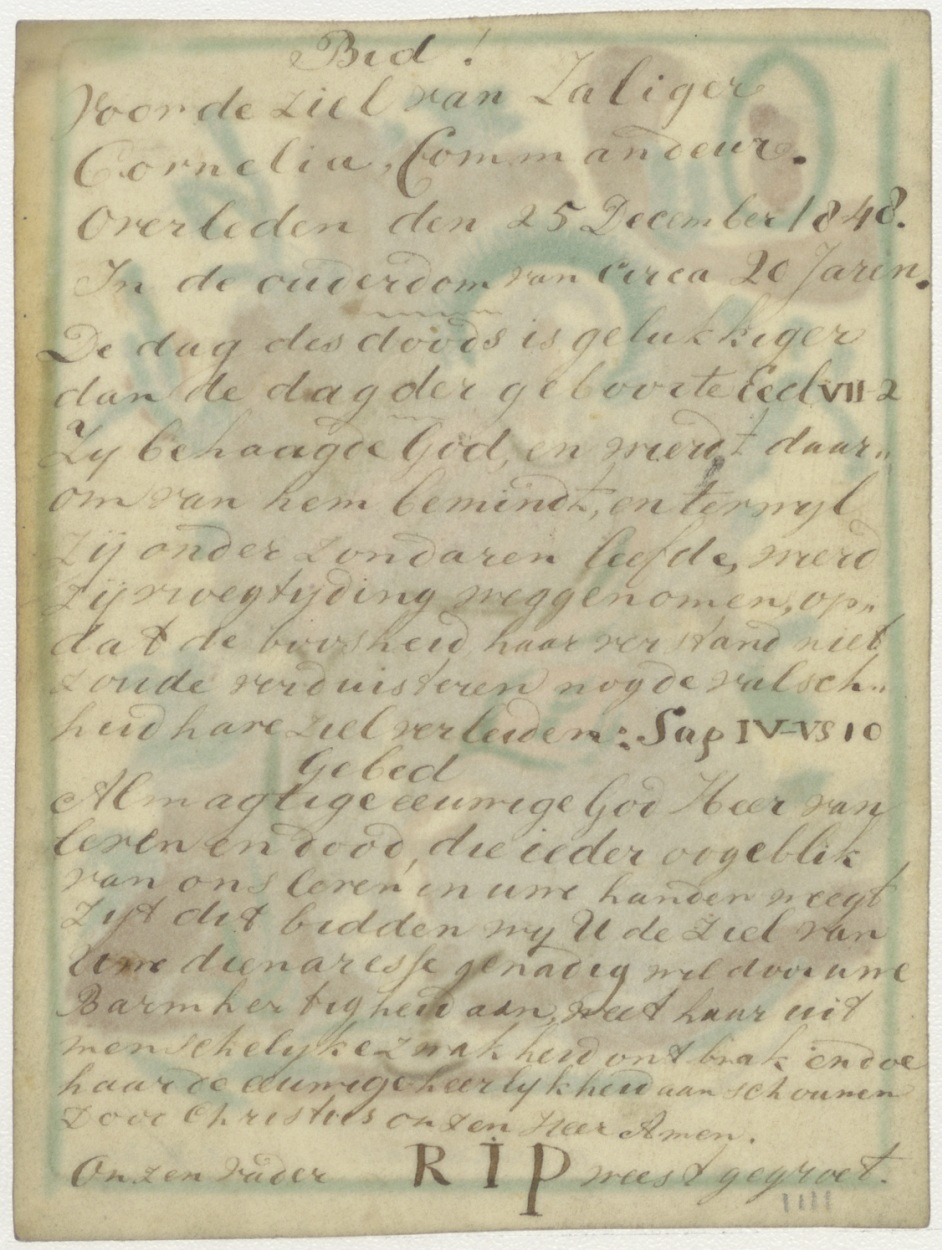 Bid !
Voor de ziel van Zaliger
Cornelia, Commandeur.
Overleden den 25 December 1848.
In de ouderdom van circa 20 Jaren.
De dag des doods is gelukkiger
dan de dag der geboorte Eccl VII-2
Zy behaagde God, en wierdt daar„
om van hem bemindt, en terwyl
zij onder zondaren leefde, wierd
zij vroegtyding weggenomen, op„
dat de boosheid haar verstand niet
zoude verduisteren nog de valsch„
heid hare ziel verleiden: Sap IV-VS 10
Gebed
Almagtige eeuwige God Heer van
leven en dood, die ieder oogeblik
van ons leven in uwe handen weegt
Zyt dit bidden wy U de Ziel van
Uwe dienaresse genadig wil door uwe
Barmhertigheid aan, weet haar uit
menschelyke zwakheid ontbrak en doe
haar de eeuwige heerlykheid aanschouwen
Door Christus onzen Heer Amen.
Onzen vader R I P weest gegroet.